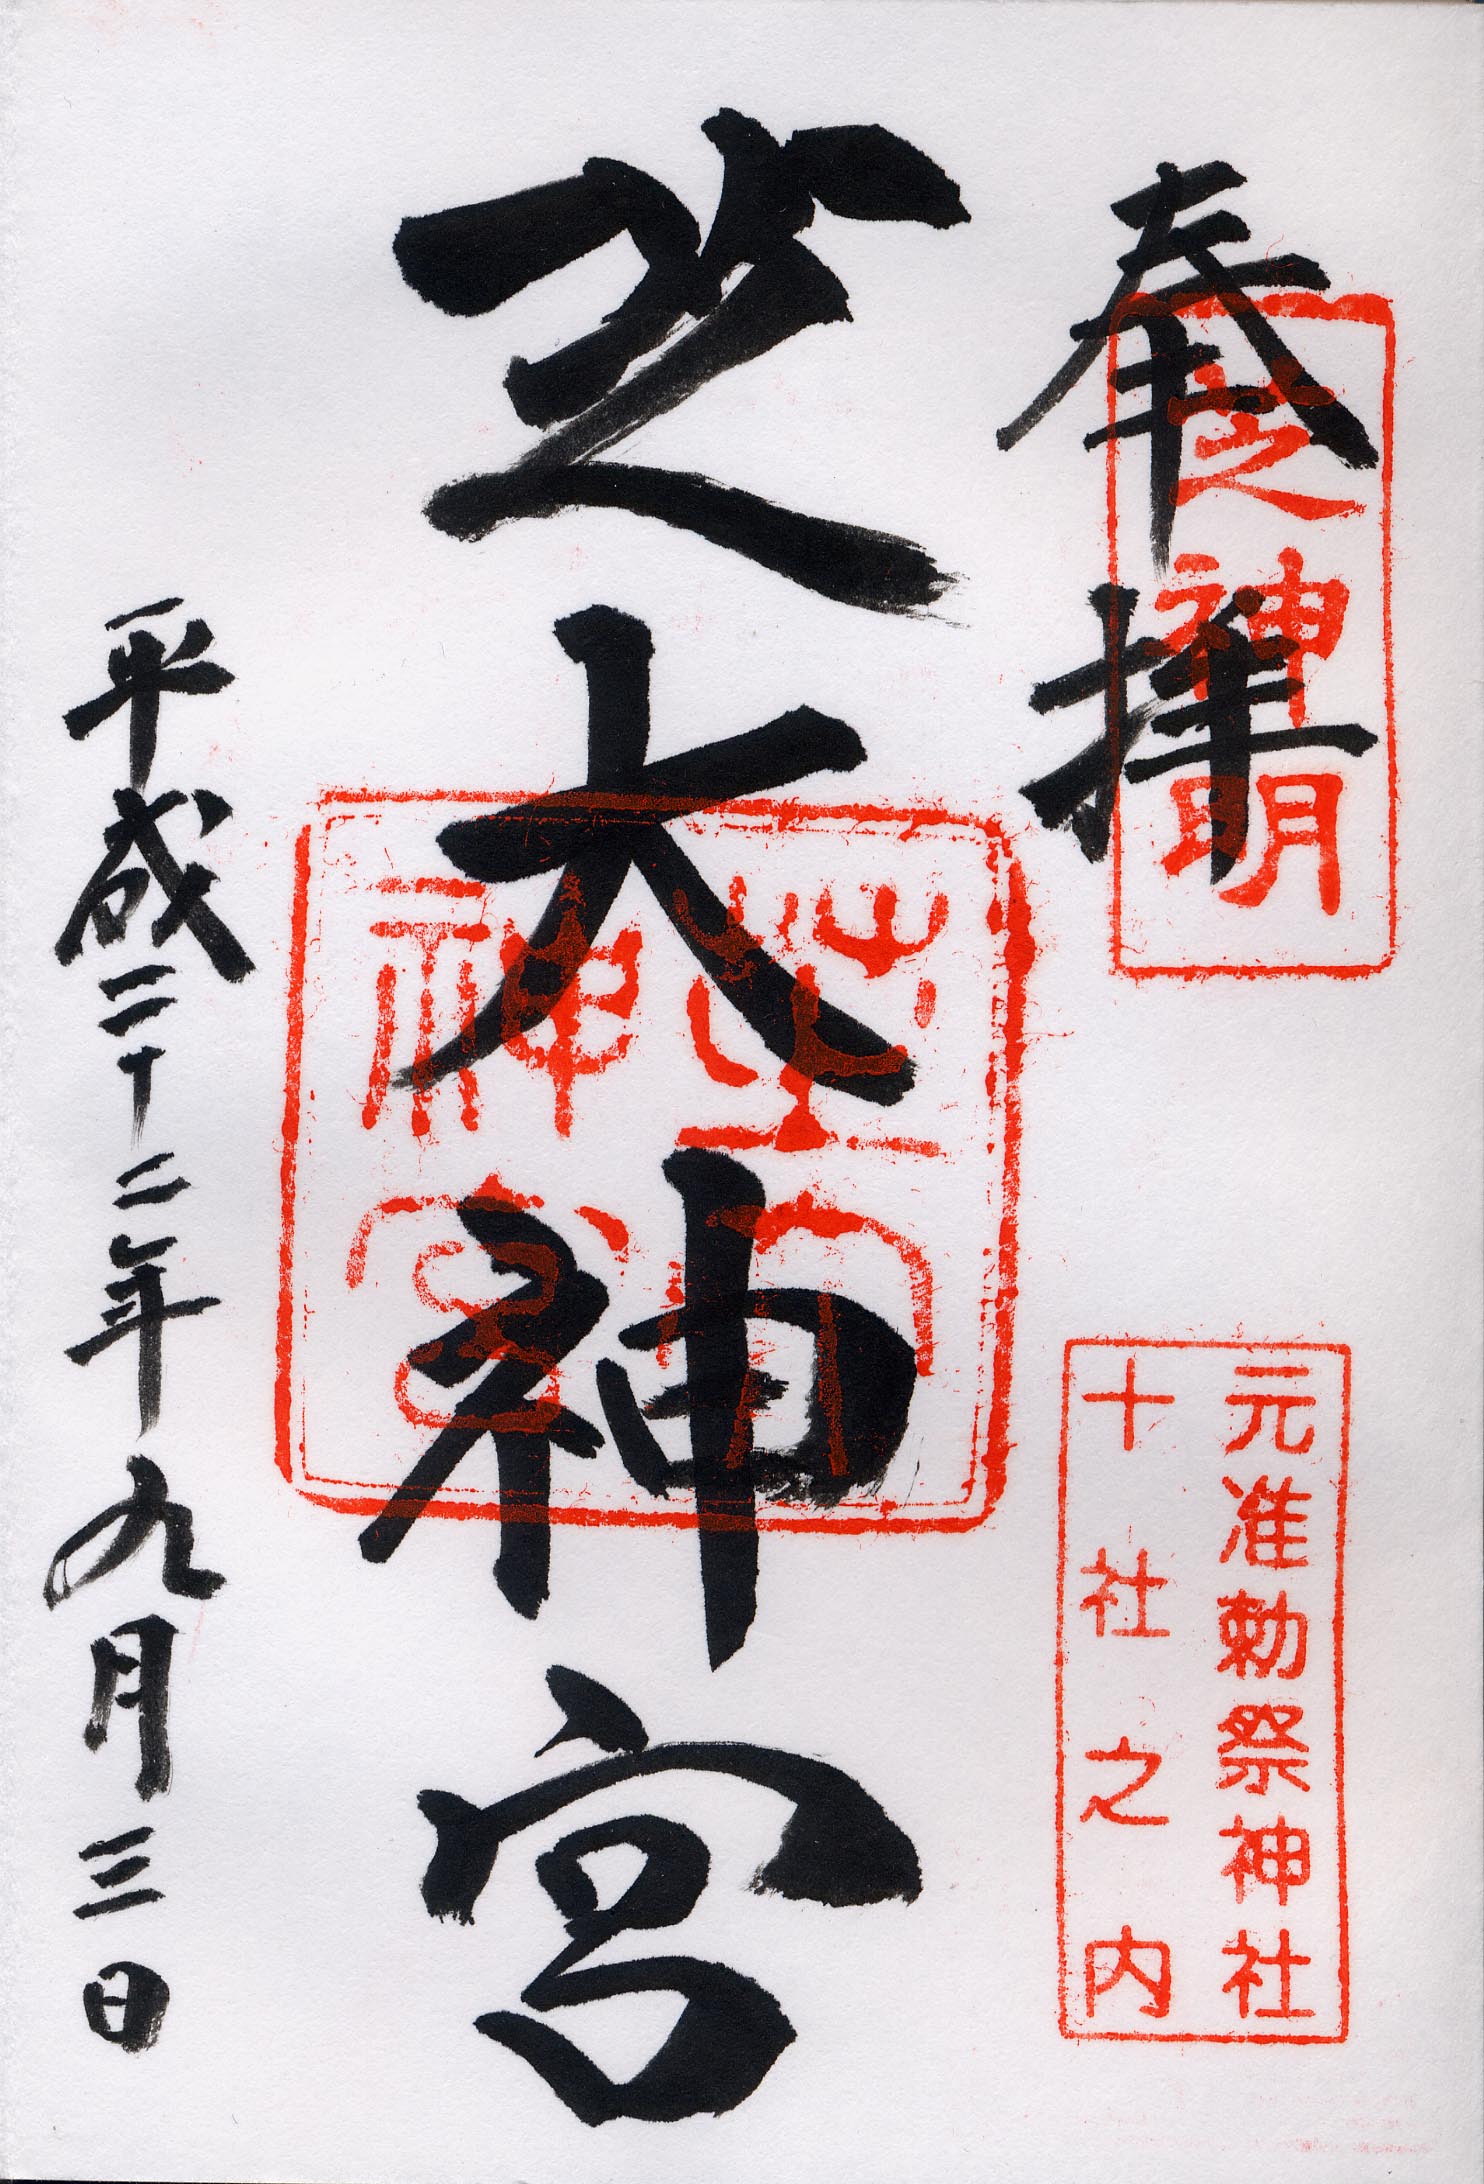 奉拝
芝神明
元准勅祭神社
十社之内
芝大神宮
芝大
神宮
平成二十二年九月三日